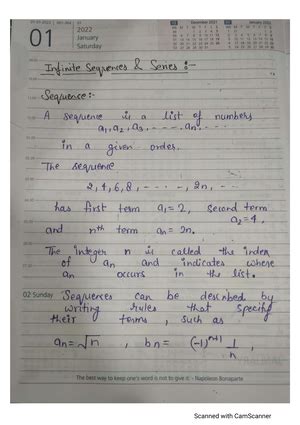 01
2022
January
Saturday
December 2021
January 2022
Infinite Sequences & Series :-
Sequence :-
A sequence is a list of numbers
a₁, a₂, a₃, .... aₙ. ...
in a given order.
The sequence
2, 4, 6, 8, - - - - -, 2n, - - -
has first term a₁ = 2, second term
a₂ = 4,
and nth term aₙ = 2n.
The integer n is called the index
of aₙ and indicates whose
aₙ occurs in the list.
02 Sunday
Sequences can be described by
writing rules that specify
their terms, such as
aₙ = √n , bₙ = (-1)ⁿ⁺¹ 1/n ,
The best way to keep one's word is not to give it :- Napoleon Bonaparte
Scanned with CamScanner